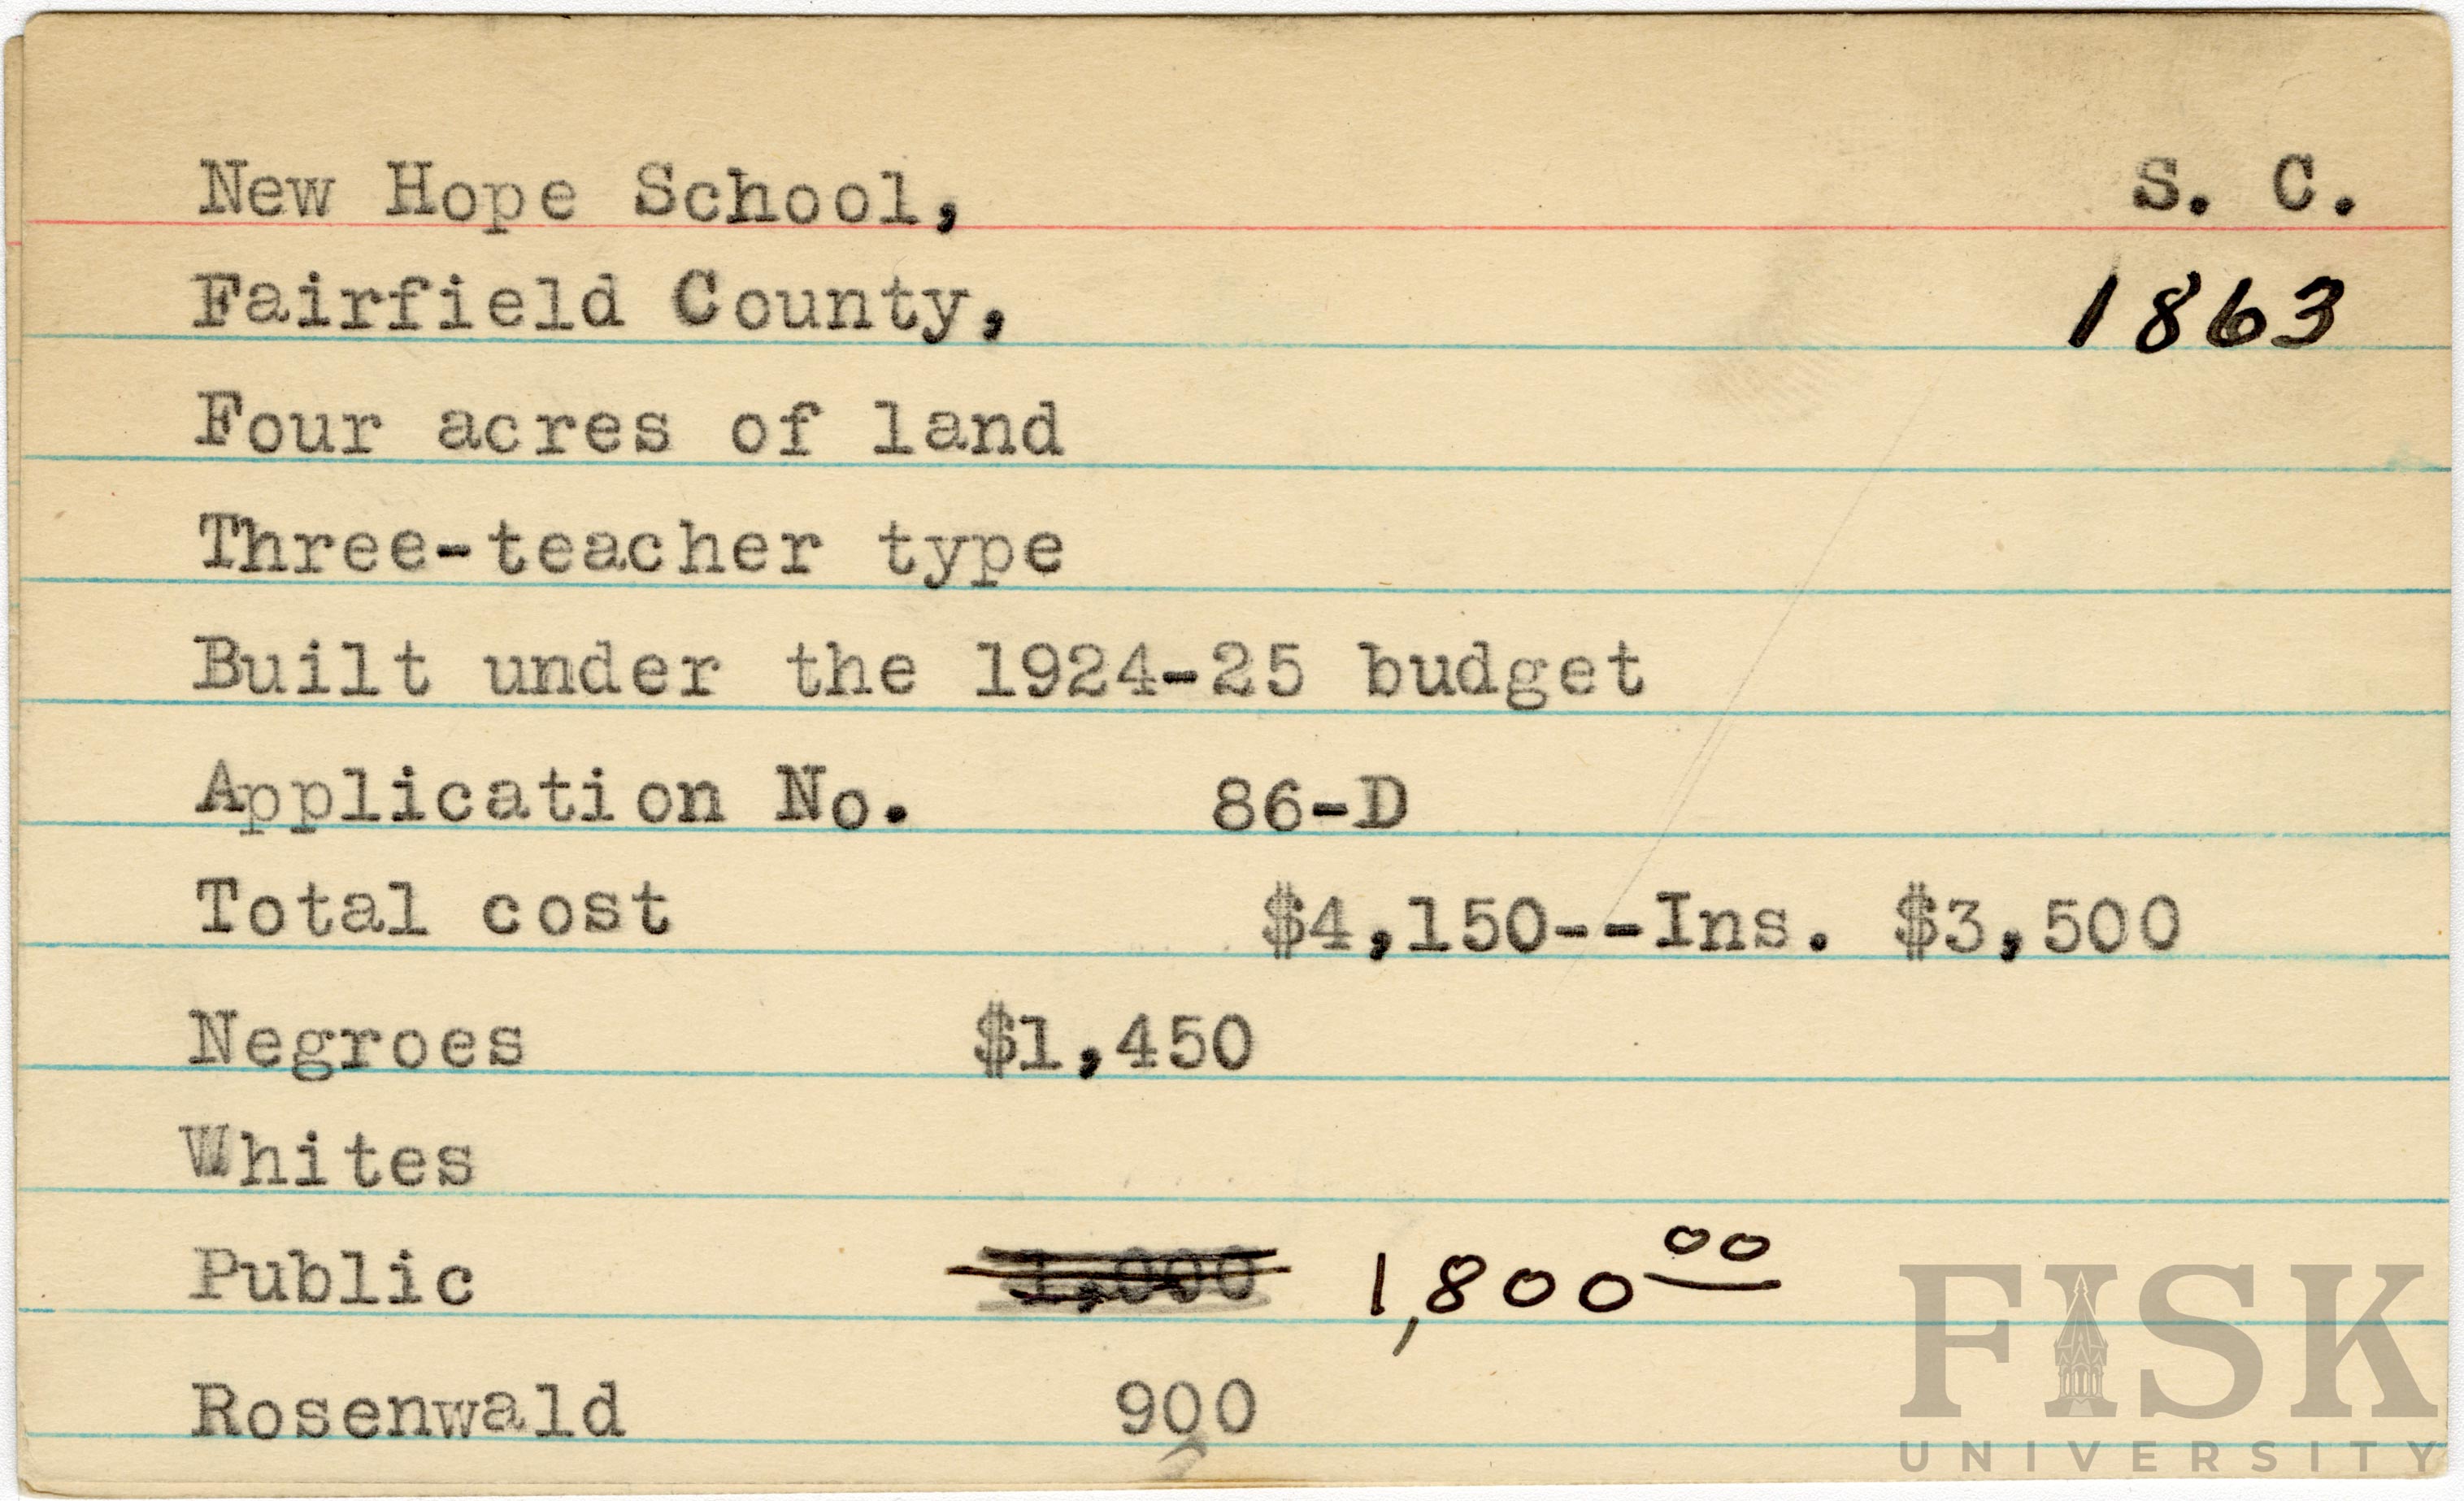 New Hope School, S. C.
Fairfield County, 1863
Four acres of land
Three-teacher type
Built under the 1924-25 budget
Application No. 86-D
Total cost $4,150--Ins. $3,500
Negroes $1,450
Whites
Public 1,000 1,800 00
Rosenwald 900
FISK
UNIVERSITY